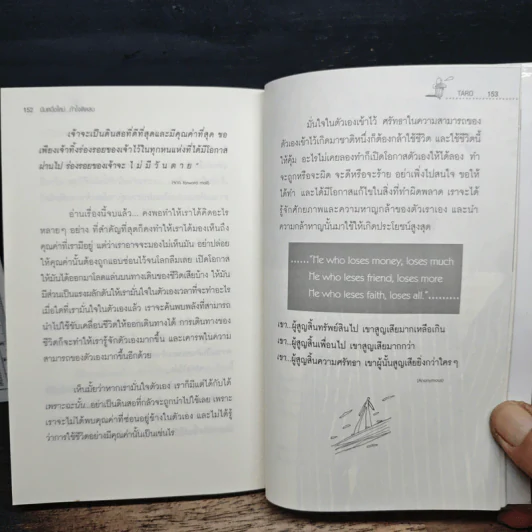 152
เจ้าจะเป็นดินสอที่ดีที่สุดและมีคุณค่าที่สุด ขอ
เพียงเจ้าทิ้งร่องรอยของเจ้าไว้ในทุกหนแห่งที่ได้มีโอกาส
ผ่านไป ร่องรอยของเจ้าจะ ไ ม่ มี วั น ต า ย "
อ่านเรื่องนี้จบแล้ว... คงพอทำให้เราได้คิดอะไร
หลายๆ อย่าง ที่สำคัญที่สุดก็คงทำให้เราได้มองเห็นถึง
คุณค่าที่เรามีอยู่ แต่ว่าเราอาจจะมองไม่เห็นมัน อย่าปล่อย
ให้คุณค่านั้นต้องถูกแอบซ่อนไว้จนโลกลืมเลย เปิดโอกาส
ให้มันได้ออกมาโลดแล่นบนทางเดินของชีวิตเสียบ้าง ให้มัน
มีส่วนเป็นแรงผลักดันให้เรามั่นใจในตัวเองเวลาที่จะทำอะไร
เมื่อใดที่เรามั่นใจในตัวเองแล้ว เราจะค้นพบพลังที่สามารถ
นำไปใช้ขับเคลื่อนชีวิตให้ออกเดินทางได้ การเดินทางของ
ชีวิตก็จะทำให้เรารู้จักตัวเองมากขึ้น และเคารพในความ
สามารถของตัวเองมากขึ้นอีกด้วย
เห็นมั้ยว่าหากเรามั่นใจตัวเอง เราก็มีแต่ได้กับได้
เพราะฉะนั้น...อย่าเป็นดินสอที่กลัวจะถูกนำไปใช้เลย เพราะ
เราจะไม่ได้พบคุณค่าที่ซ่อนอยู่ข้างในตัวเอง และไม่ได้รู้
ว่าการใช้ชีวิตอย่างมีคุณค่านั้นเป็นเช่นไร
TARO 153
มั่นใจในตัวเองเข้าไว้ ศรัทธาในความสามารถของ
ตัวเองเข้าไว้เกิดมาชาติหนึ่งก็ต้องกล้าใช้ชีวิต และใช้ชีวิตนี้
ให้คุ้ม อะไรไม่เคยลองทำก็เปิดโอกาสตัวเองให้ได้ลอง ทำ
จะถูกหรือจะผิด จะดีหรือจะร้าย อย่าเพิ่งไปสนใจ ขอให้
ได้ทำ และได้มีโอกาสแก้ไขในสิ่งที่ทำผิดพลาด เราจะได้
รู้จักศักยภาพและความหาญกล้าของตัวเราเอง และนำ
ความกล้าหาญนั้นมาใช้ให้เกิดประโยชน์สูงสุด
......"He who loses money, loses much
He who leses friend, loses more
He who leses faith, loses all.".........
เขา...ผู้สูญสิ้นทรัพย์สินไป เขาสูญเสียมากเหลือเกิน
เขา...ผู้สูญสิ้นเพื่อนไป เขาสูญเสียมากกว่า
เขา...ผู้สูญสิ้นความศรัทธา เขาผู้นั้นสูญเสียยิ่งกว่าใครๆ